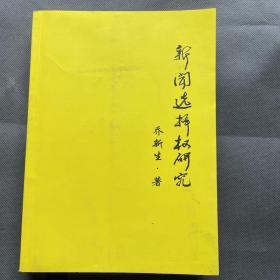 新闻选择权研究
乔新生·著